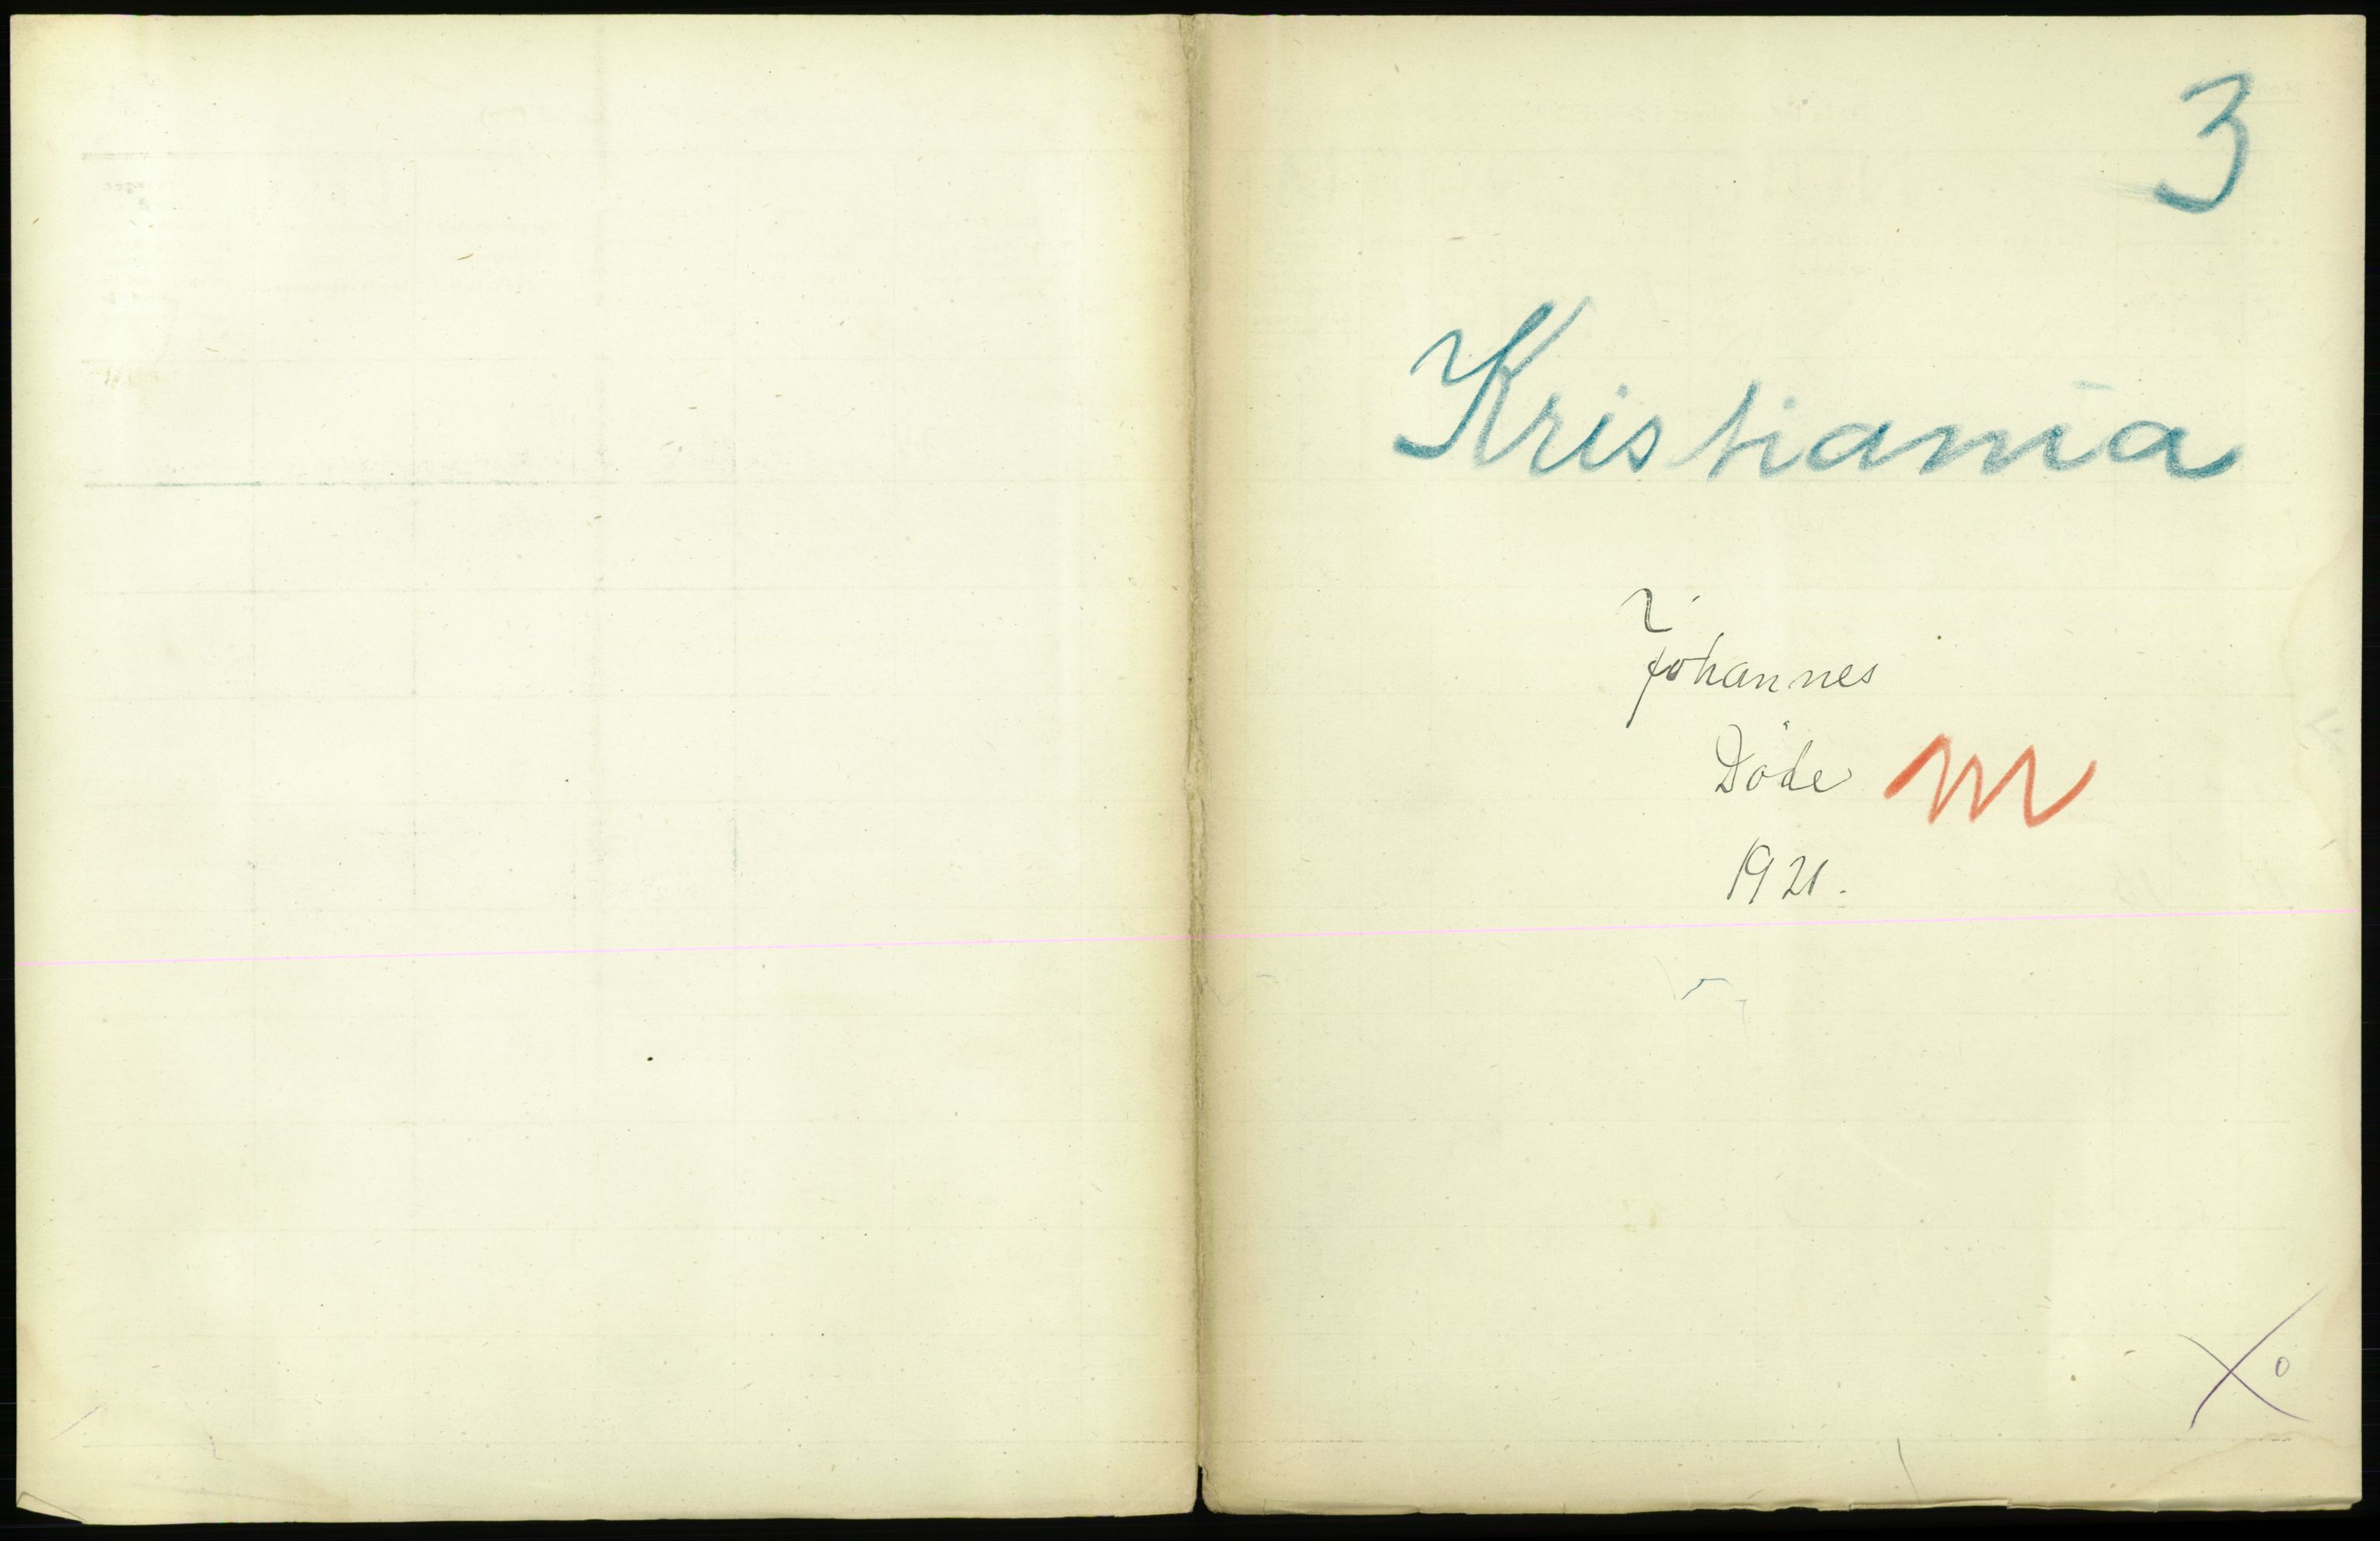 3
Kristiania
Johannes
Döde M
1921.
X o